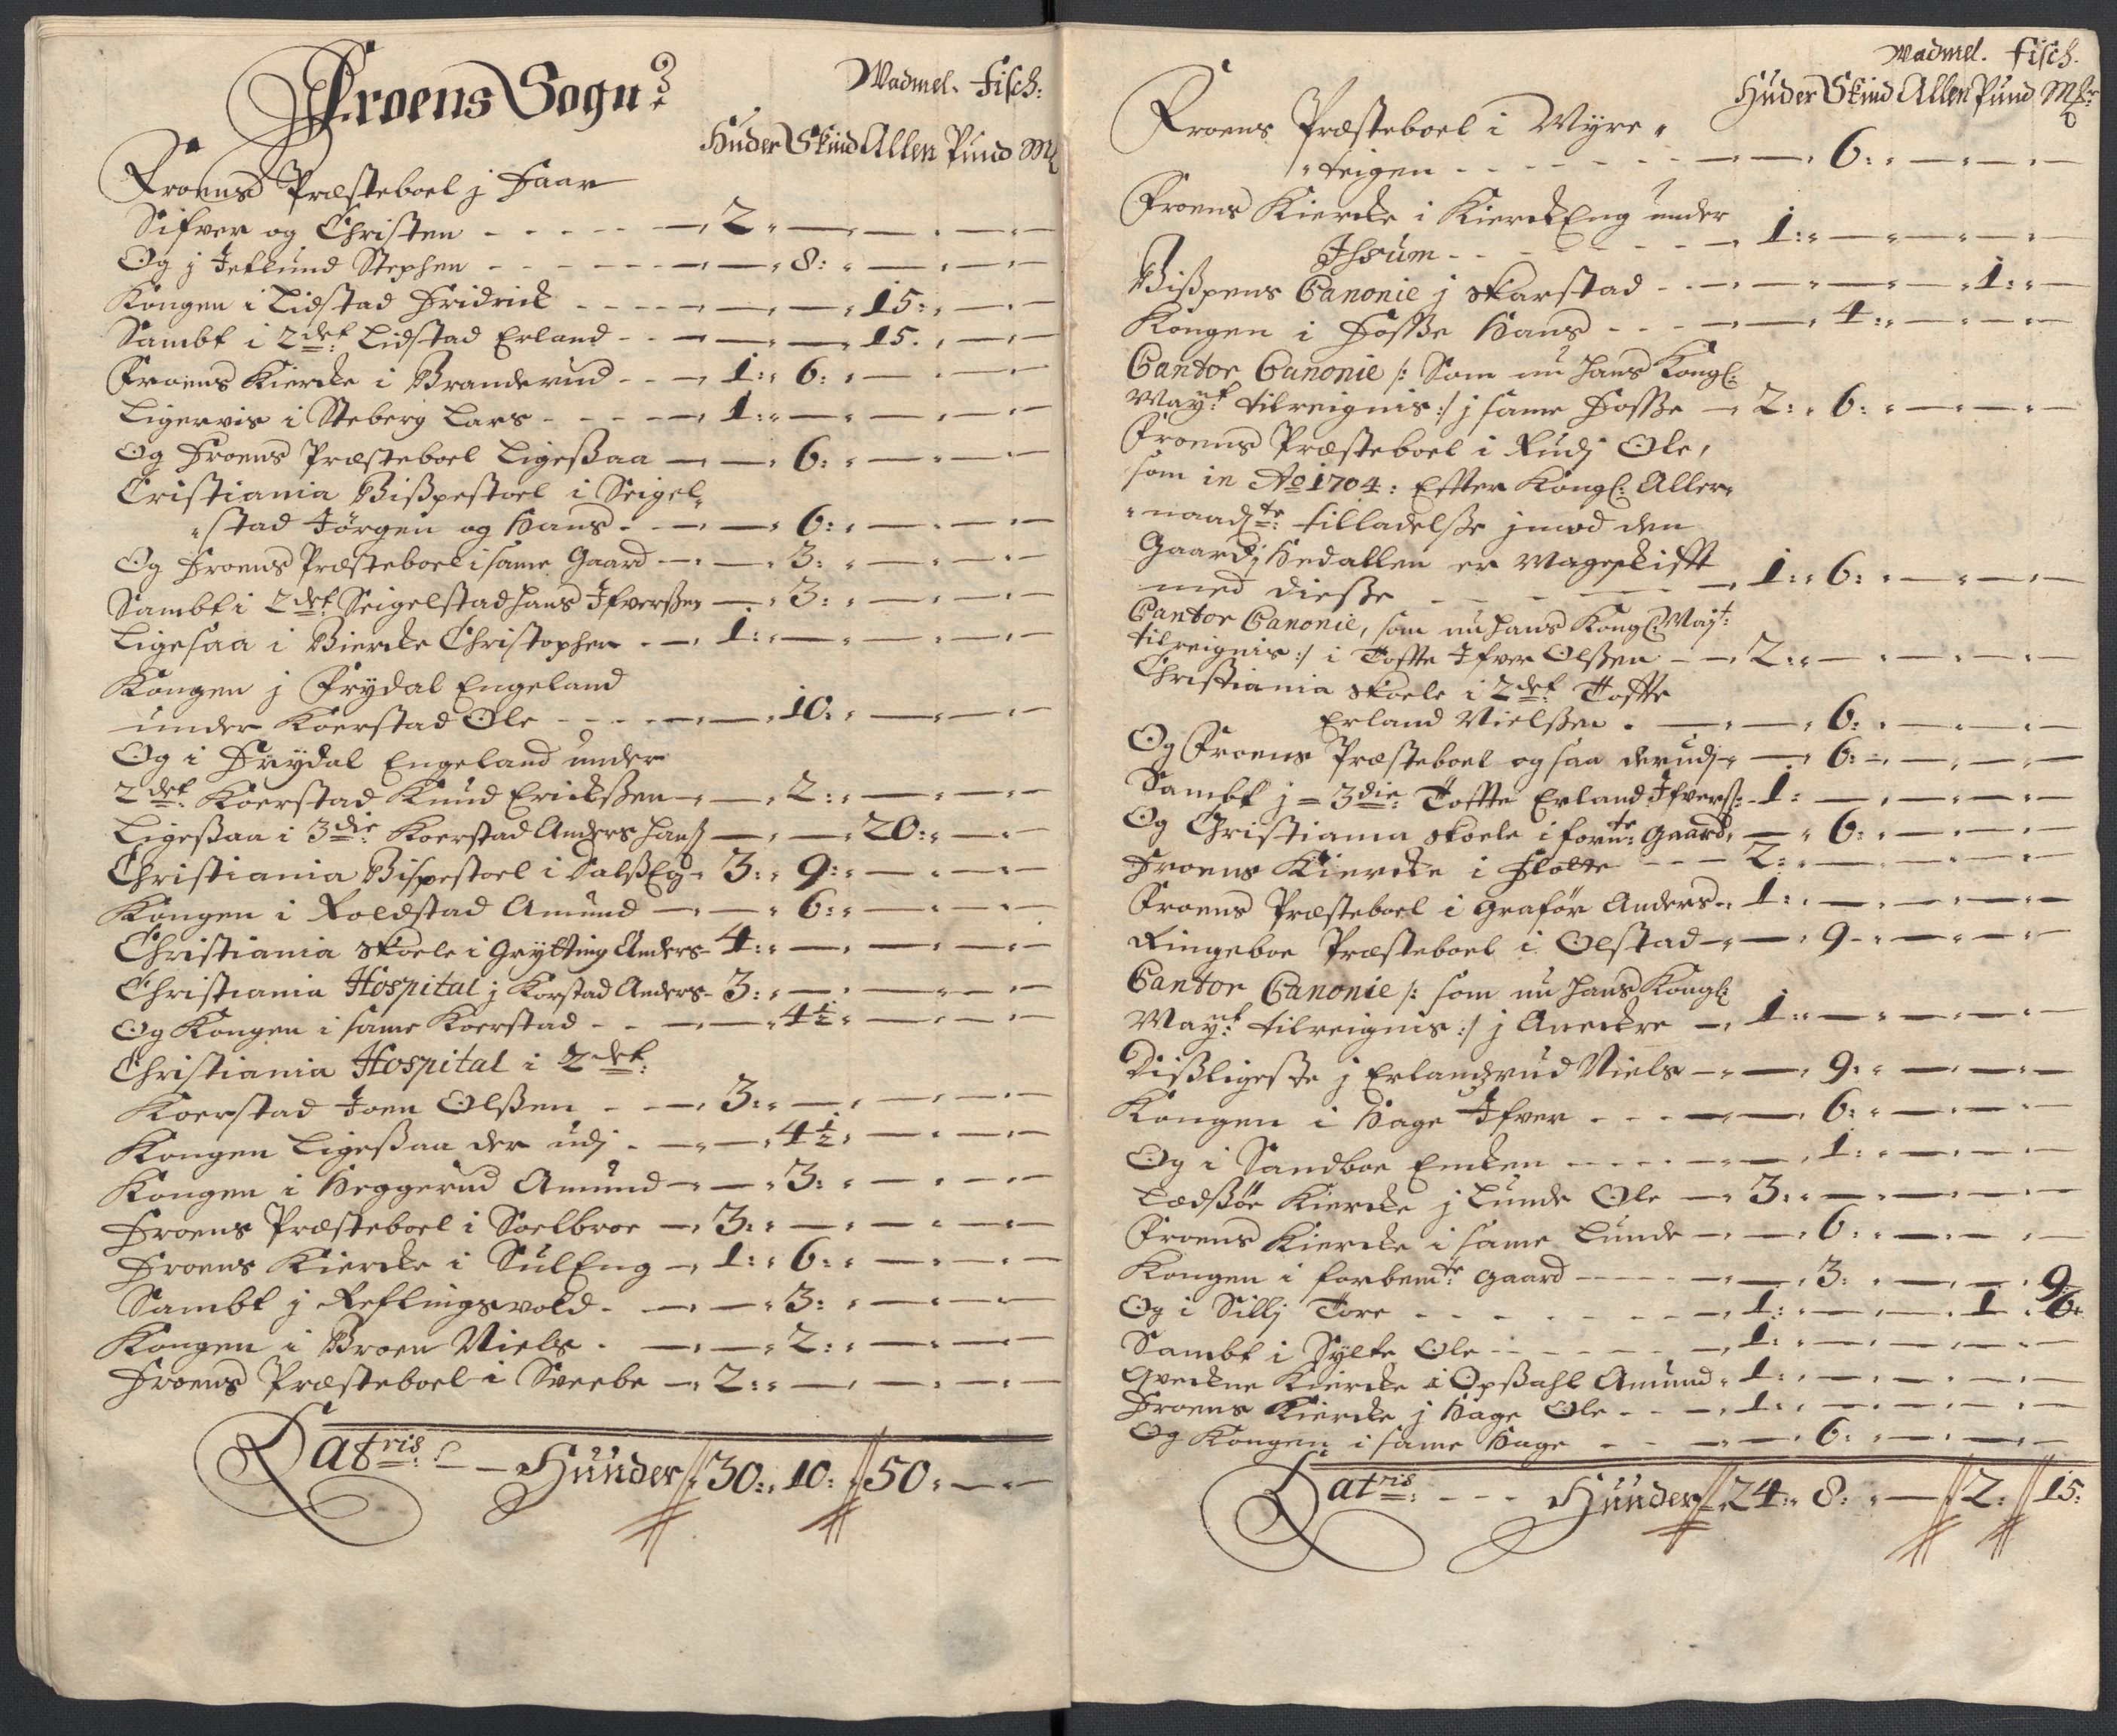 Froens Sogn
Wadmel. Fisch:
Huder Skind Allen Pund M
Froens Præsteboel j Faar
Sifver og Christen - - - - - 2
Og j Jetlund Stephen - - - - - 8:
Kongen i Lidstad Fridrick - - - - 15:
Sambt i 2det: Lidstad Erland - - 15.
Froens Kiercke i Branderud - - 1: 6:
Ligervis i Steberg Lars - - - - 1:
Og Froens Præsteboel Ligeßaa 6:
Cristiania Bißpestoel i Seigel„
„stad Jørgen og Hans - - 6:
Og Froens Præsteboel i same Gaard - 3:
Sambt i 2det Seigelstad Hans Ifverßen 3:
Ligesaa i Biercke Christopher - 1:
Kongen j Frydal Engeland
under Koerstad Ole - - - - 10:
Og i Frydal Engeland under
2det: Koerstad Knud Erichßen 2:
Ligeßaa i 3die Koerstad Anders Hanß 20:
Christiania Bispestoel i DalßEg 3: 9:
Kongen i Roldstad Amund 6:
Christiania Skoele i Grytting Anders 4:
Christiania Hospital j Korstad Anders 3:
Og Kongen i same Koerstad - - 4½
Christiania Hospital i 2det:
Koerstad Joen Olßen - - 3:
Kongen Ligeßaa der udj - 4½
Kongen i Heggerud Amund 3:
Froens Præsteboel i Soelbroe 3:
Froens Kiercke i SulEng 1: 6:
Sambt j Reflingsvold - 3:
Kongen i Broen Niels - 2:
Froens Præsteboel i Sveebe 2:
Latris: - Huuder 30: 10: 50:
Wadmel. Fisch.
Huder Skind Allen Pund Mkr
Froens Præsteboel i Myre„
„teigen - - - - - 6:
Froens Kiercke i KierckEng under
Jhrum - - - - 1:
Bißpens Canonie j Skarstad - - 1:
Kongen i Foße Hans - - - 4:
Cantor Canonie /: Som nu Hans Kongl:
Mayt: tilreignis:/ j same Foße 2: 6:
Froens Præsteboel i Rudj Ole,
som in Ao 1704: Efter Kongl: Aller„
„naadte: tilladelße jmod den
Gaard j Hedallen er Mageskifft
med dieße - - - - 1: 6:
Cantor Canonie, som nu Hans Kongl: Mayt:
tilreignis:/ i Tofte Ifver Olßen - - 2:
Christiania Skoele i 2det Tofte
Erland Nielßen - 6:
Og Froens Præsteboel ogsaa derudj 6:
Sambt j 3die: Tofte Erland Ifverß: 1:
Og Christiania Skoele i fornte: Gaard, 6:
Froens Kiercke i Flotte - - - 2:
Froens Præsteboel i Grafør Anders 1:
Ringeboe Præsteboel i Olstad 9
Cantor Canonie /: som nu Hans Kongl:
Mayt: tilreignis:/ j Aneckre 1:
Dißligeste j Erlandzrud Niels 9:
Kongen i Hage Ifver - - - 6:
Og i Sandboe Emken - - - - 1:
Lædßøe Kiercke j Lunde Ole 3:
Froens Kiercke i same Lunde 6:
Kongen i forbemte Gaard - - - 3: 9
Og i Sillj Tore - - - - - - 1: 1 6:
Sambt i Sylte Ole - - - - - 1:
Qveckne Kiercke i Opßahl Amund 1:
Froens Kiercke j Hage Ole - - 1:
Og Kongen i same Hage - - 6:
Latris: - - - Huuder 24: 8: 2: 15: